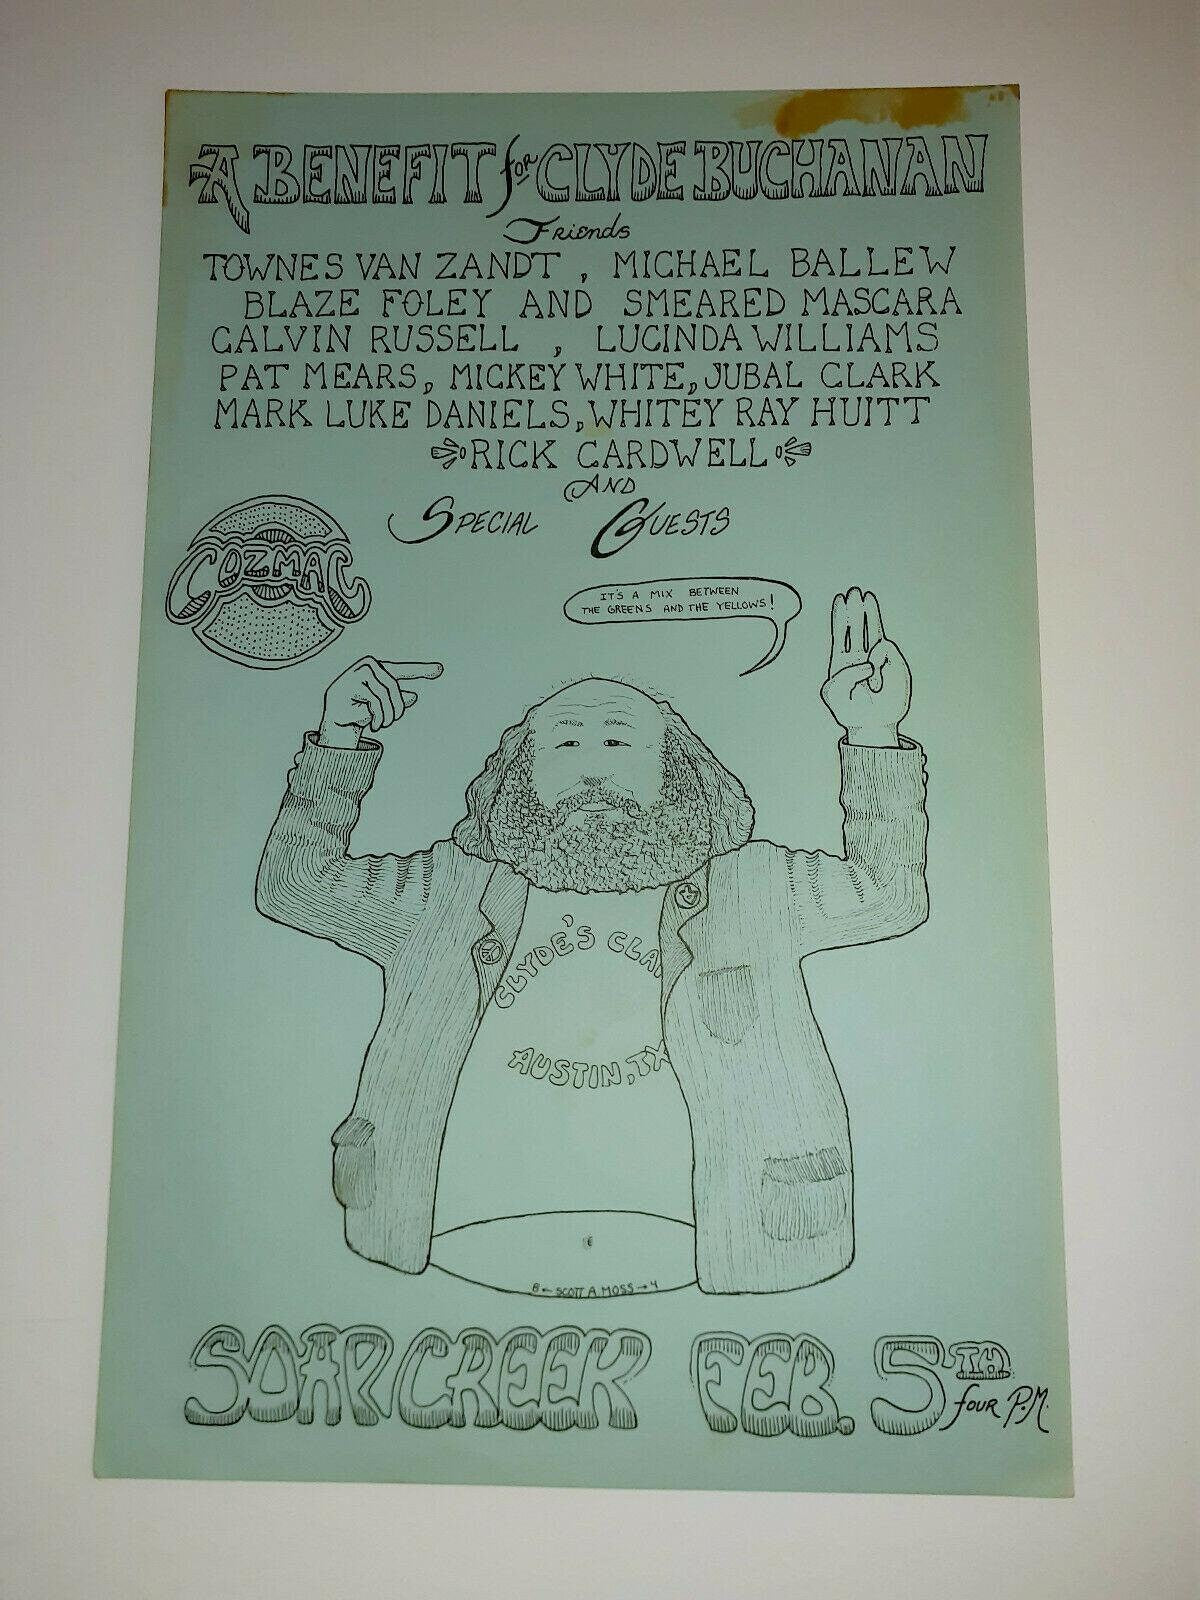 A BENEFIT for CLYDE BUCHANAN
Friends
TOWNES VAN ZANDT, MICHAEL BALLEW
BLAZE FOLEY AND SMEARED MASCARA
CALVIN RUSSELL, LUCINDA WILLIAMS
PAT MEARS, MICKEY WHITE, JUBAL CLARK
MARK LUKE DANIELS, WHITEY RAY HUITT
RICK CARDWELL
AND
SPECIAL GUESTS
COZMAC
IT'S A MIX BETWEEN
THE GREENS AND THE YELLOWS!
CLYDE'S CLAN
AUSTIN, TX
8 ← SCOTT A. MOSS → 4
SOAP CREEK FEB. 5TH
four P.M.